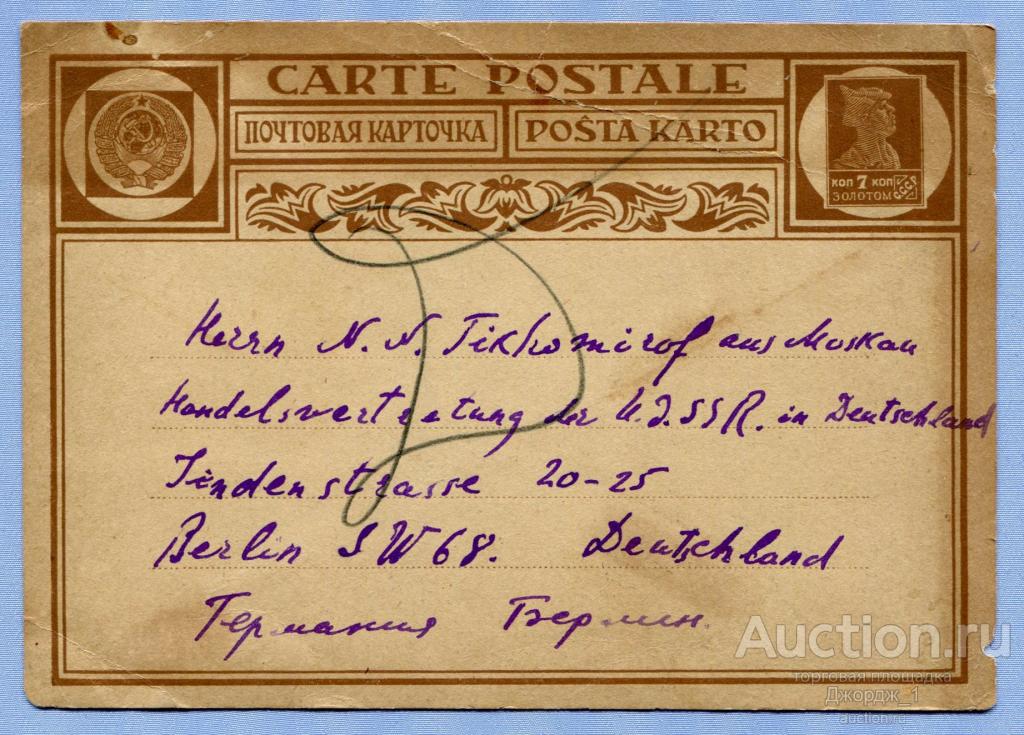 CARTE POSTALE
ПОЧТОВАЯ КАРТОЧКА
POŜTA KARTO
КОП 7 КОП
ЗОЛОТОМ
СССР
Herrn N. N. Tikhomirof aus Moskau
Handelsvertretung der U.d.SSR. in Deutschland
Lindenstrasse 20-25
Berlin SW68. Deutschland
Германия Берлин.
Auction.ru
торговая площадка
Джордж_1
auction.ru